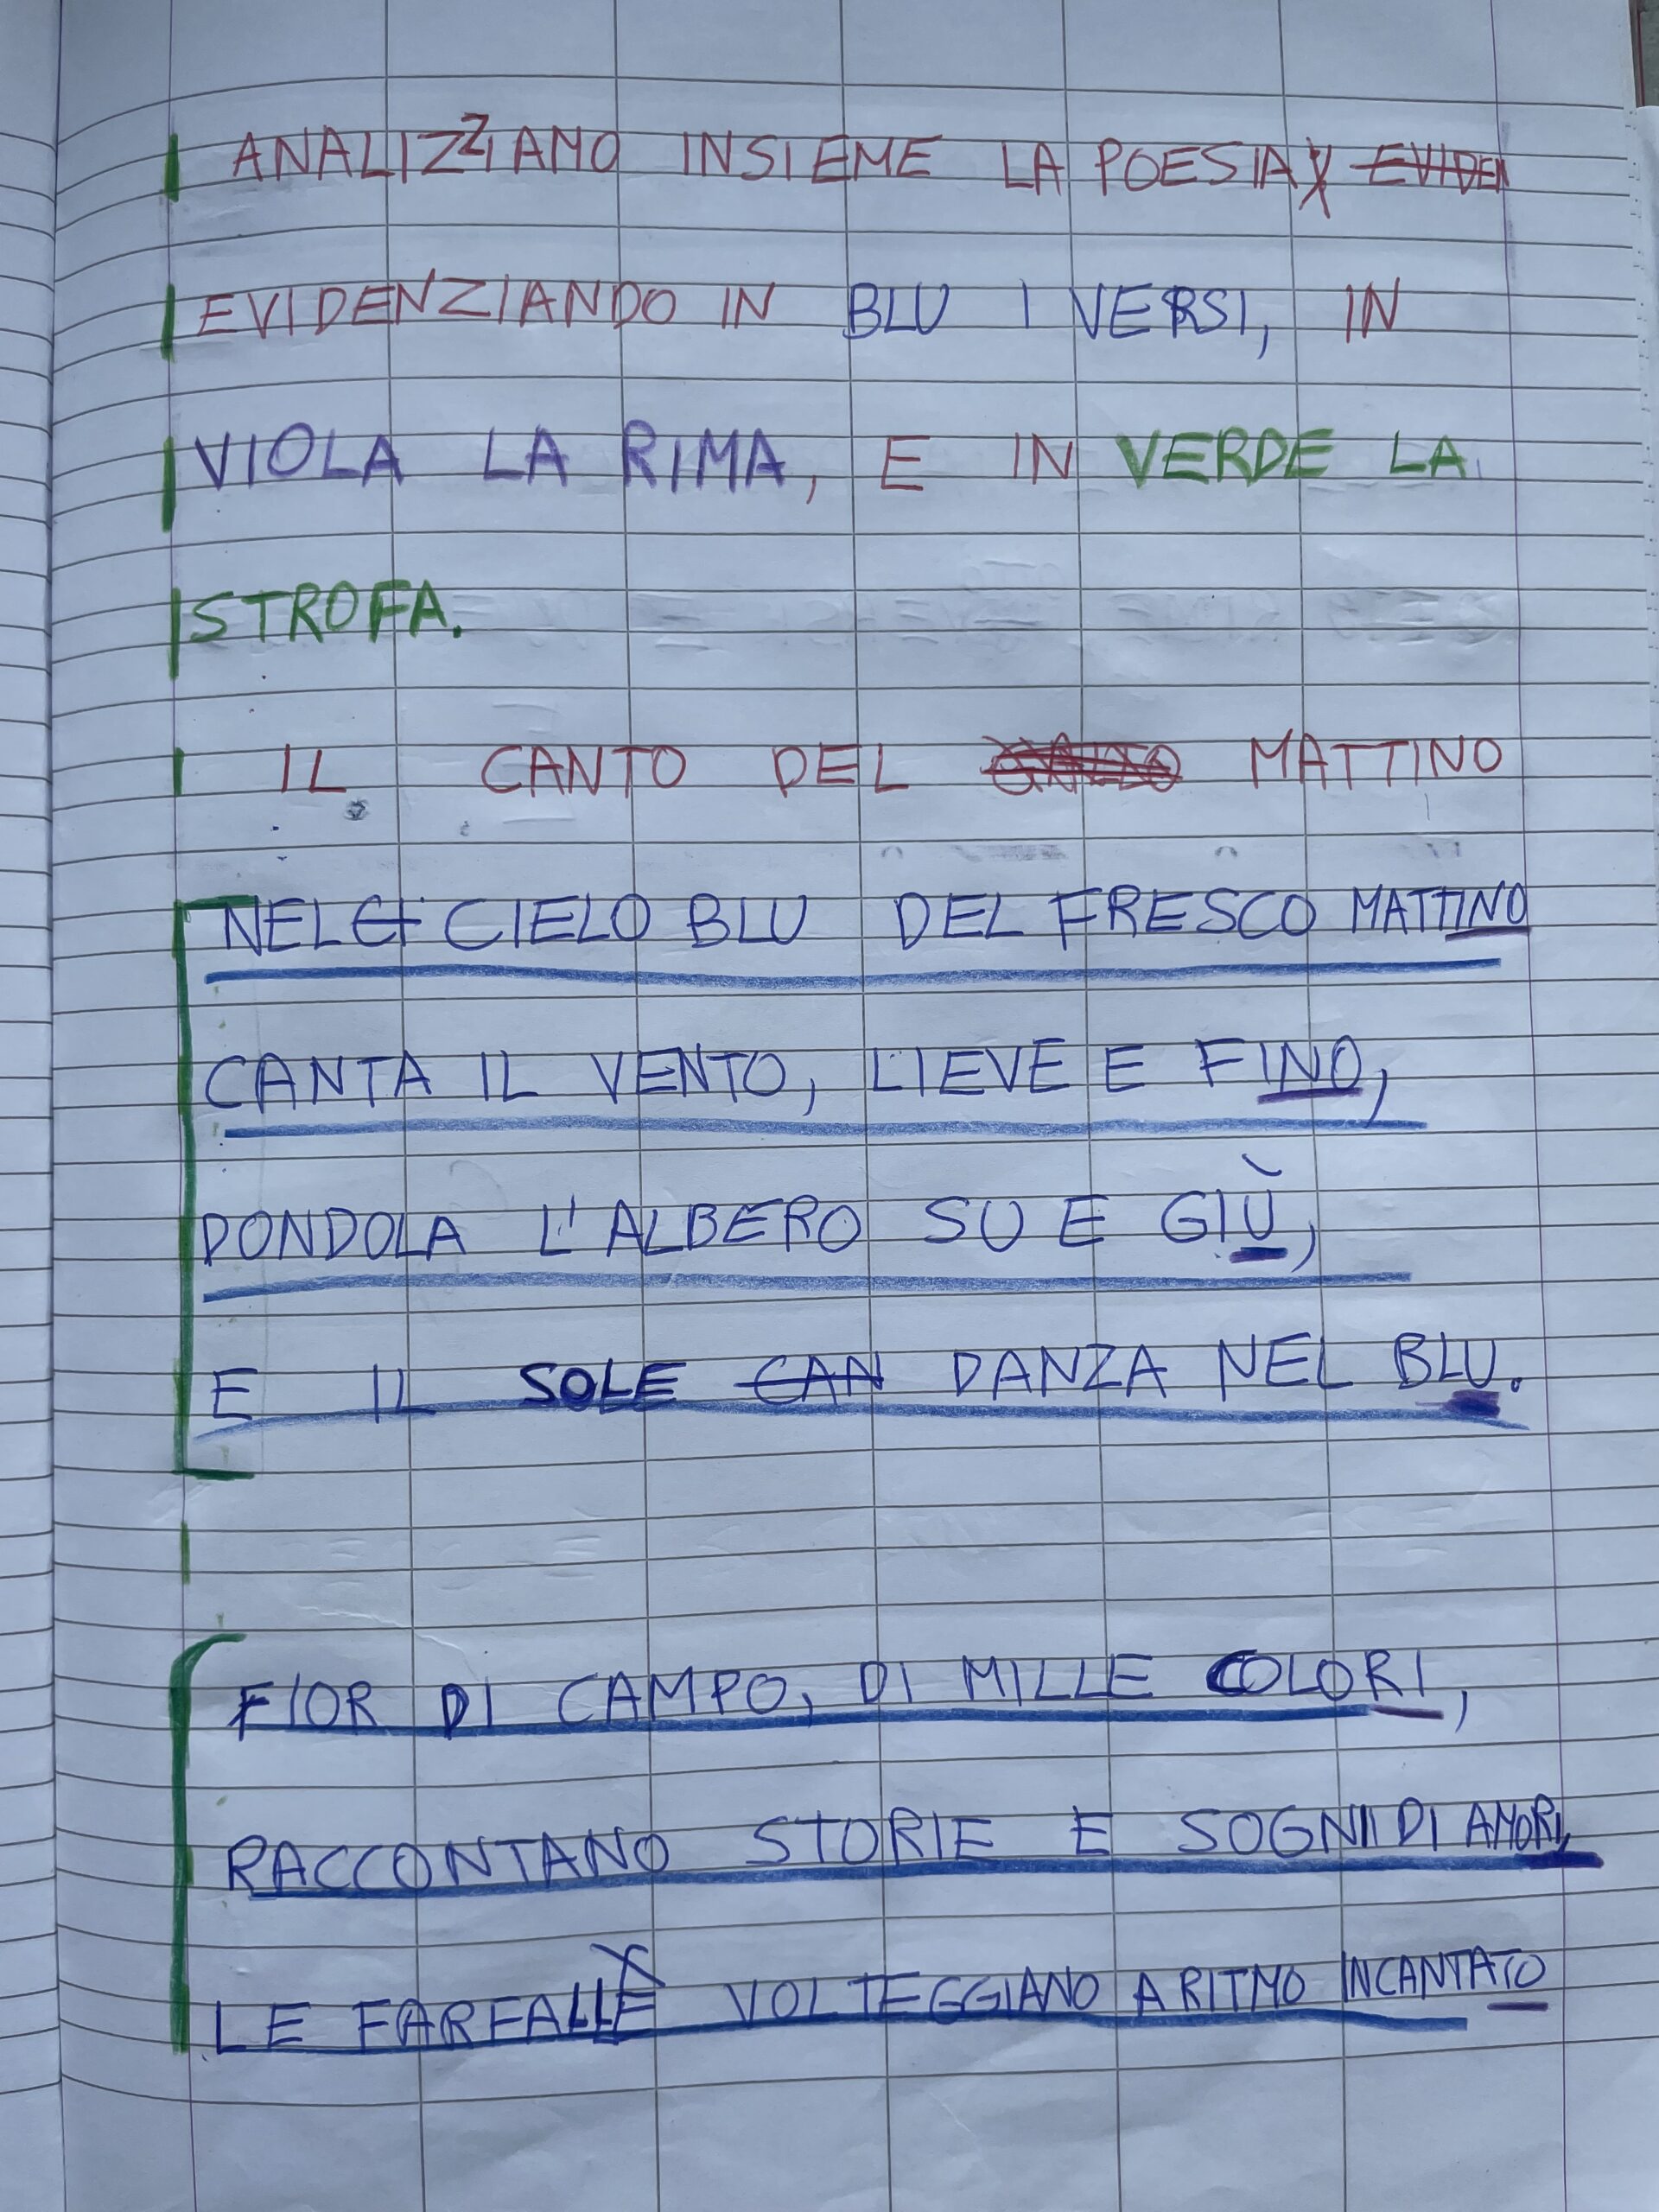 ANALIZZIAMO INSIEME LA POESIA EVIDEN
EVIDENZIANDO IN BLU I VERSI, IN
VIOLA LA RIMA, E IN VERDE LA
STROFA.
IL CANTO DEL MATTINO
NEL CI CIELO BLU DEL FRESCO MATTINO
CANTA IL VENTO, LIEVE E FINO,
DONDOLA L'ALBERO SU E GIÙ,
E IL SOLE CAN DANZA NEL BLU.
FIOR DI CAMPO, DI MILLE COLORI,
RACCONTANO STORIE E SOGNI DI AMORI,
LE FARFALLE VOLTEGGIANO A RITMO INCANTATO